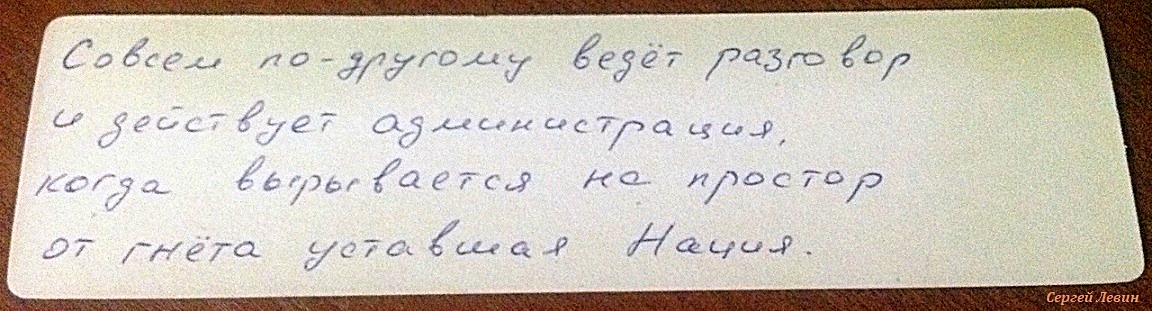 Совсем по-другому ведёт разговор
и действует администрация,
когда вырывается на простор
от гнёта уставшая Нация.
Сергей Левин